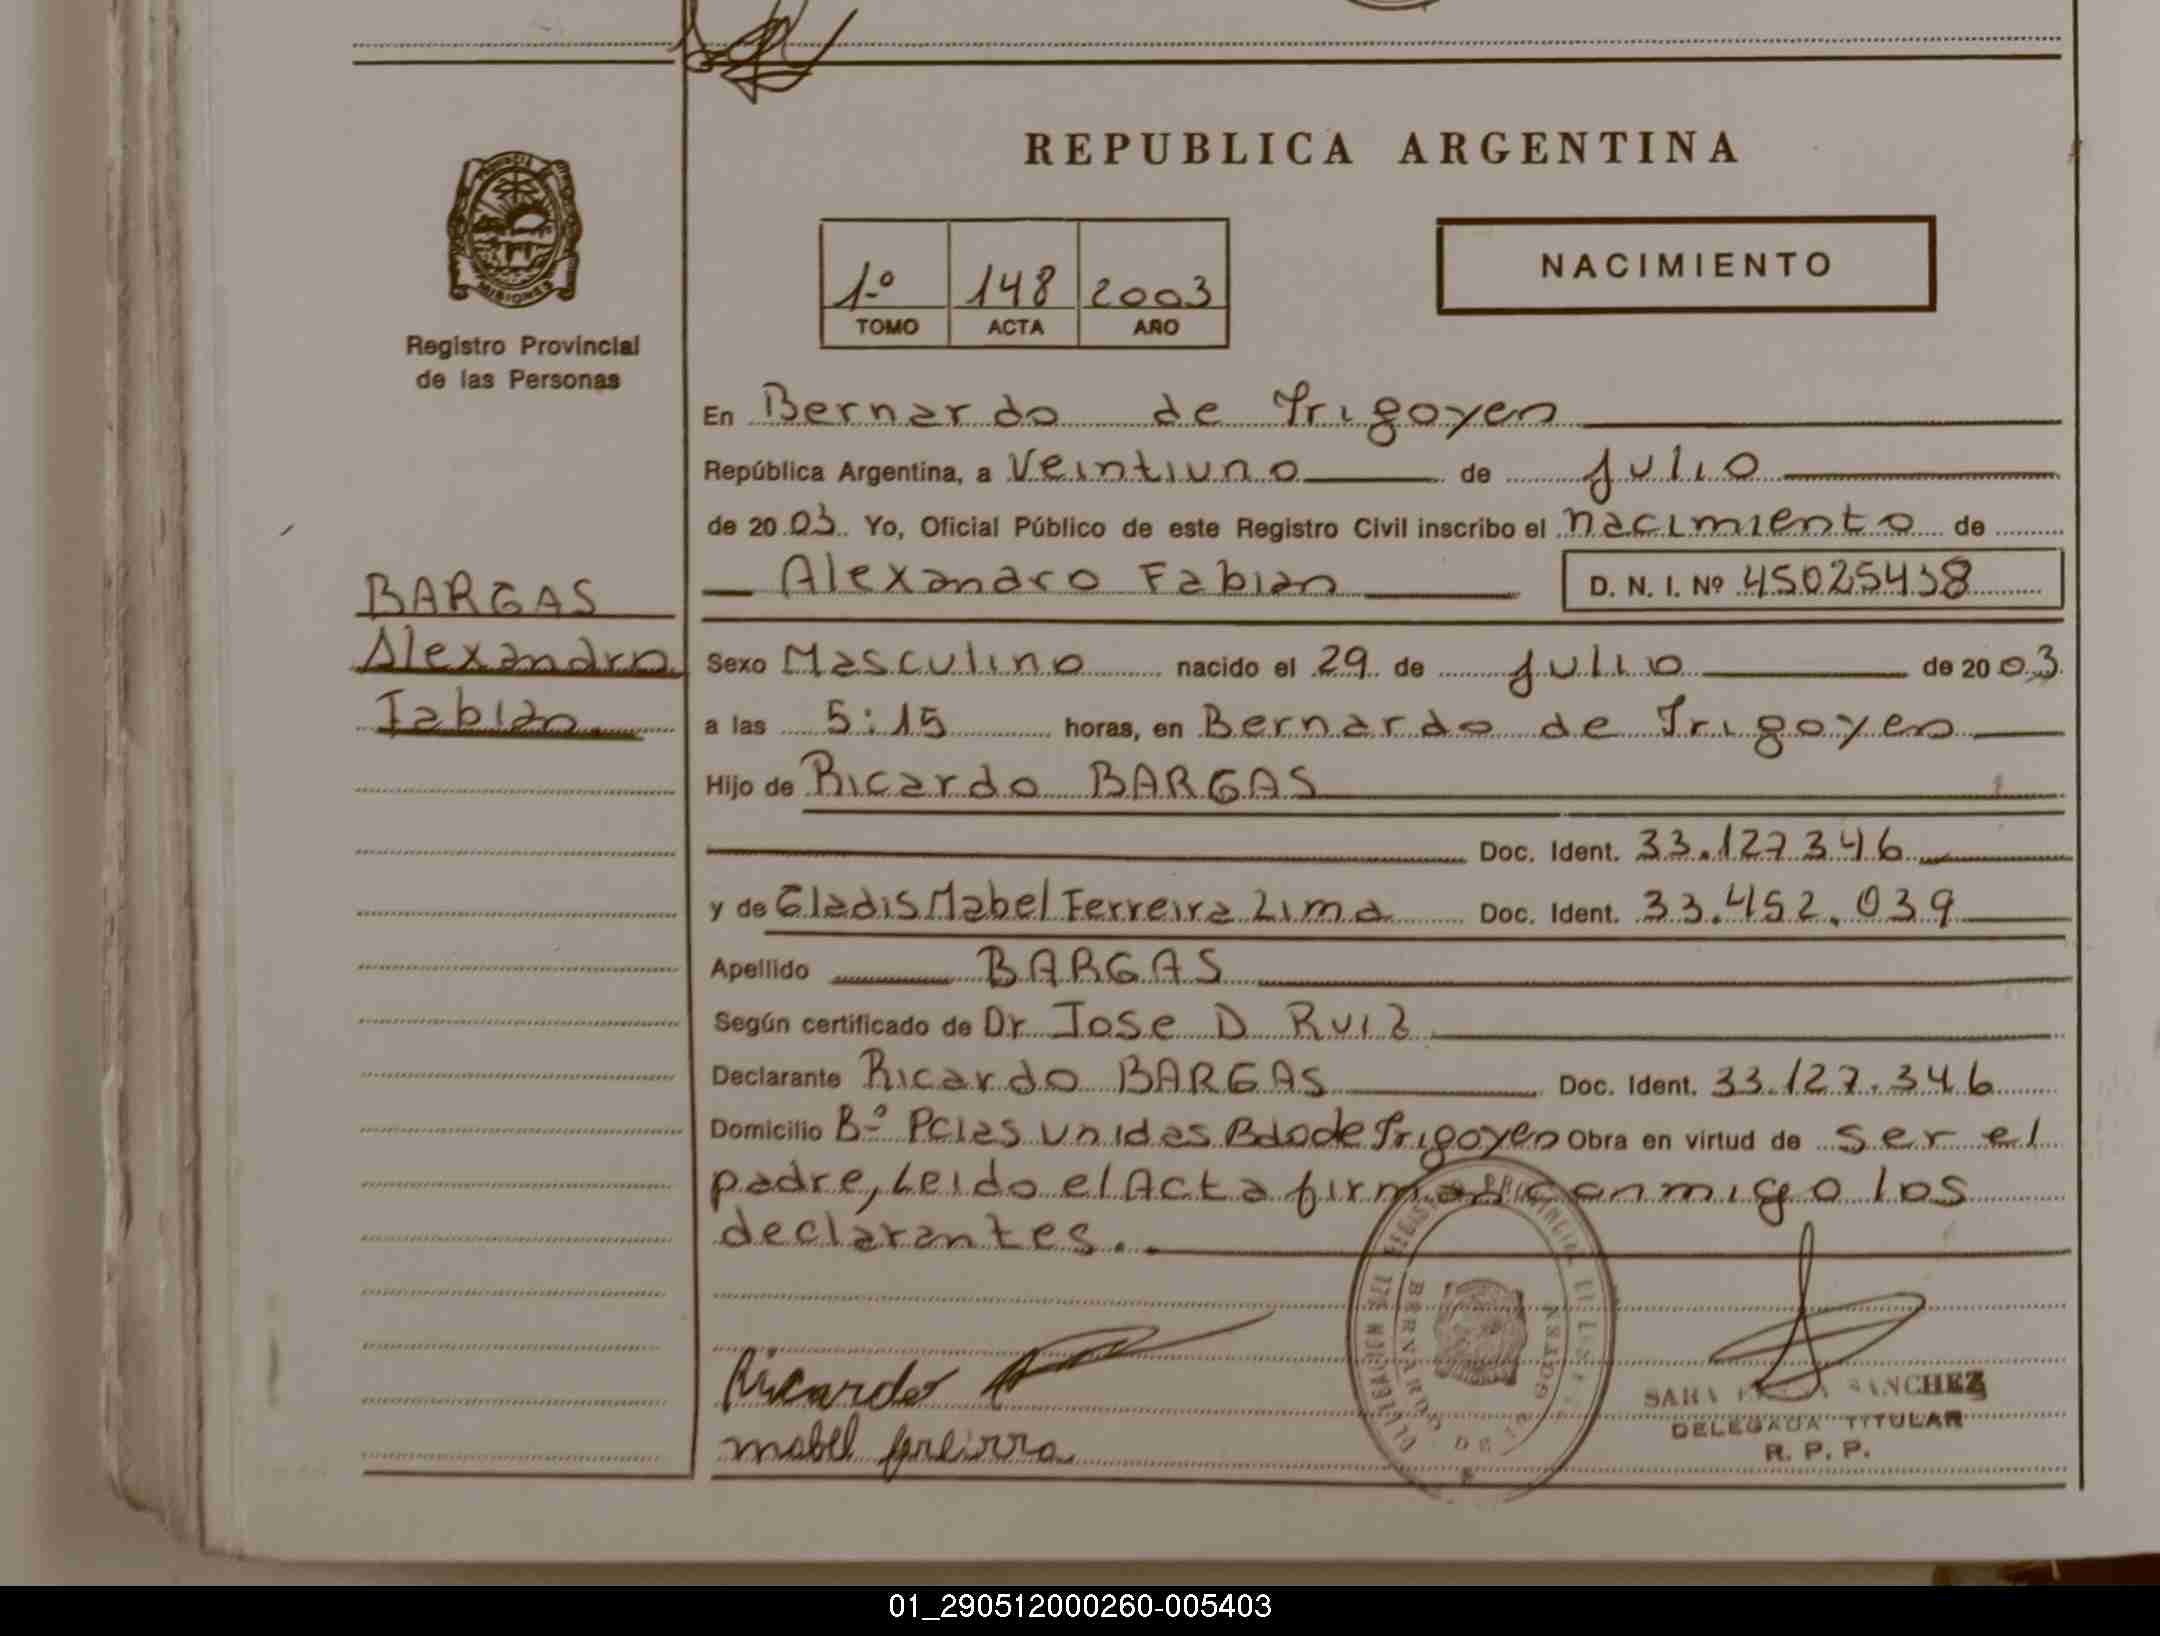 REPUBLICA ARGENTINA
PROVINCIA
MISIONES
Registro Provincial
de las Personas
1º 148 2003
TOMO ACTA AÑO
NACIMIENTO
En Bernardo de Irigoyen
República Argentina, a Veintiuno de Julio
de 2003. Yo, Oficial Público de este Registro Civil inscribo el nacimiento de
Alexandro Fabian D. N. I. Nº 45025438
BARGAS
Alexandro
Fabian
Sexo Masculino nacido el 29 de Julio de 2003
a las 5:15 horas, en Bernardo de Irigoyen
Hijo de Ricardo BARGAS
Doc. Ident. 33.127346
y de Gladis Mabel Ferreira Lima Doc. Ident. 33.452.039
Apellido BARGAS
Según certificado de Dr Jose D Ruiz
Declarante Ricardo BARGAS Doc. Ident. 33.127.346
Domicilio Bº Pcias Unidas Bdo de Irigoyen Obra en virtud de ser el
padre, Leido el Acta firman conmigo los
declarantes.
Ricardo
mabel ferreirra
SARA SANCHEZ
DELEGADA TITULAR
R. P. P.
BERNARDO DE
01_290512000260-005403